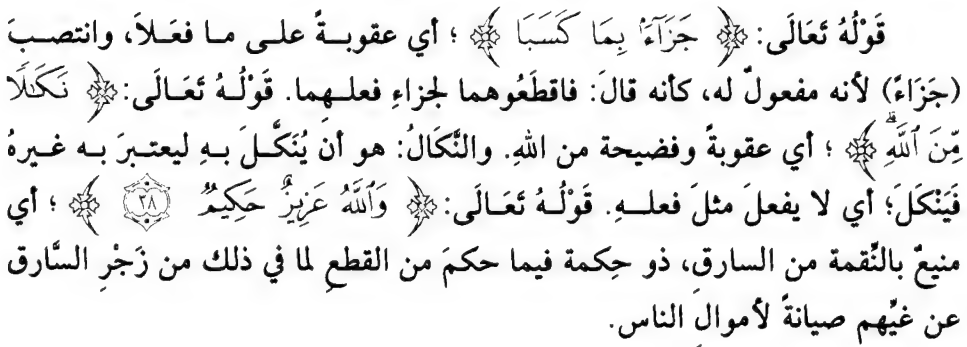 قَوْلُهُ تَعَالَى: ﴿ جَزَآءً بِمَا كَسَبَا ﴾ ؛ أي عقوبــةً علــى مـا فعَـلاَ، وانتصـبَ
(جَزَاءً) لأنه مفعولٌ له، كأنه قالَ: فاقطَعُوهما لجزاءِ فعلــهِما. قَوْلُـهُ تَعَـالَى: ﴿ نَكَـٰلًا
مِّنَ ٱللَّهِۗ ﴾ ؛ أي عقوبةً وفضيحة من اللهِ. والنَّكَالُ: هو أن يُنَكَّـلَ بـهِ ليعتبـرَ بـه غـيرهُ
فَيَنْكَلَ؛ أي لا يفعلَ مثلَ فعلــهِ. قَوْلُـهُ تَعَـالَى: ﴿ وَٱللَّهُ عَزِيزٌ حَكِيمٌ ٣٨ ﴾ ؛ أي
منيعٌ بالنِّقمة من السارقِ، ذو حِكمة فيما حكمَ من القطعِ لما في ذلك من زَجْرِ السَّارق
عن غيِّهم صيانةً لأموالِ الناسِ.